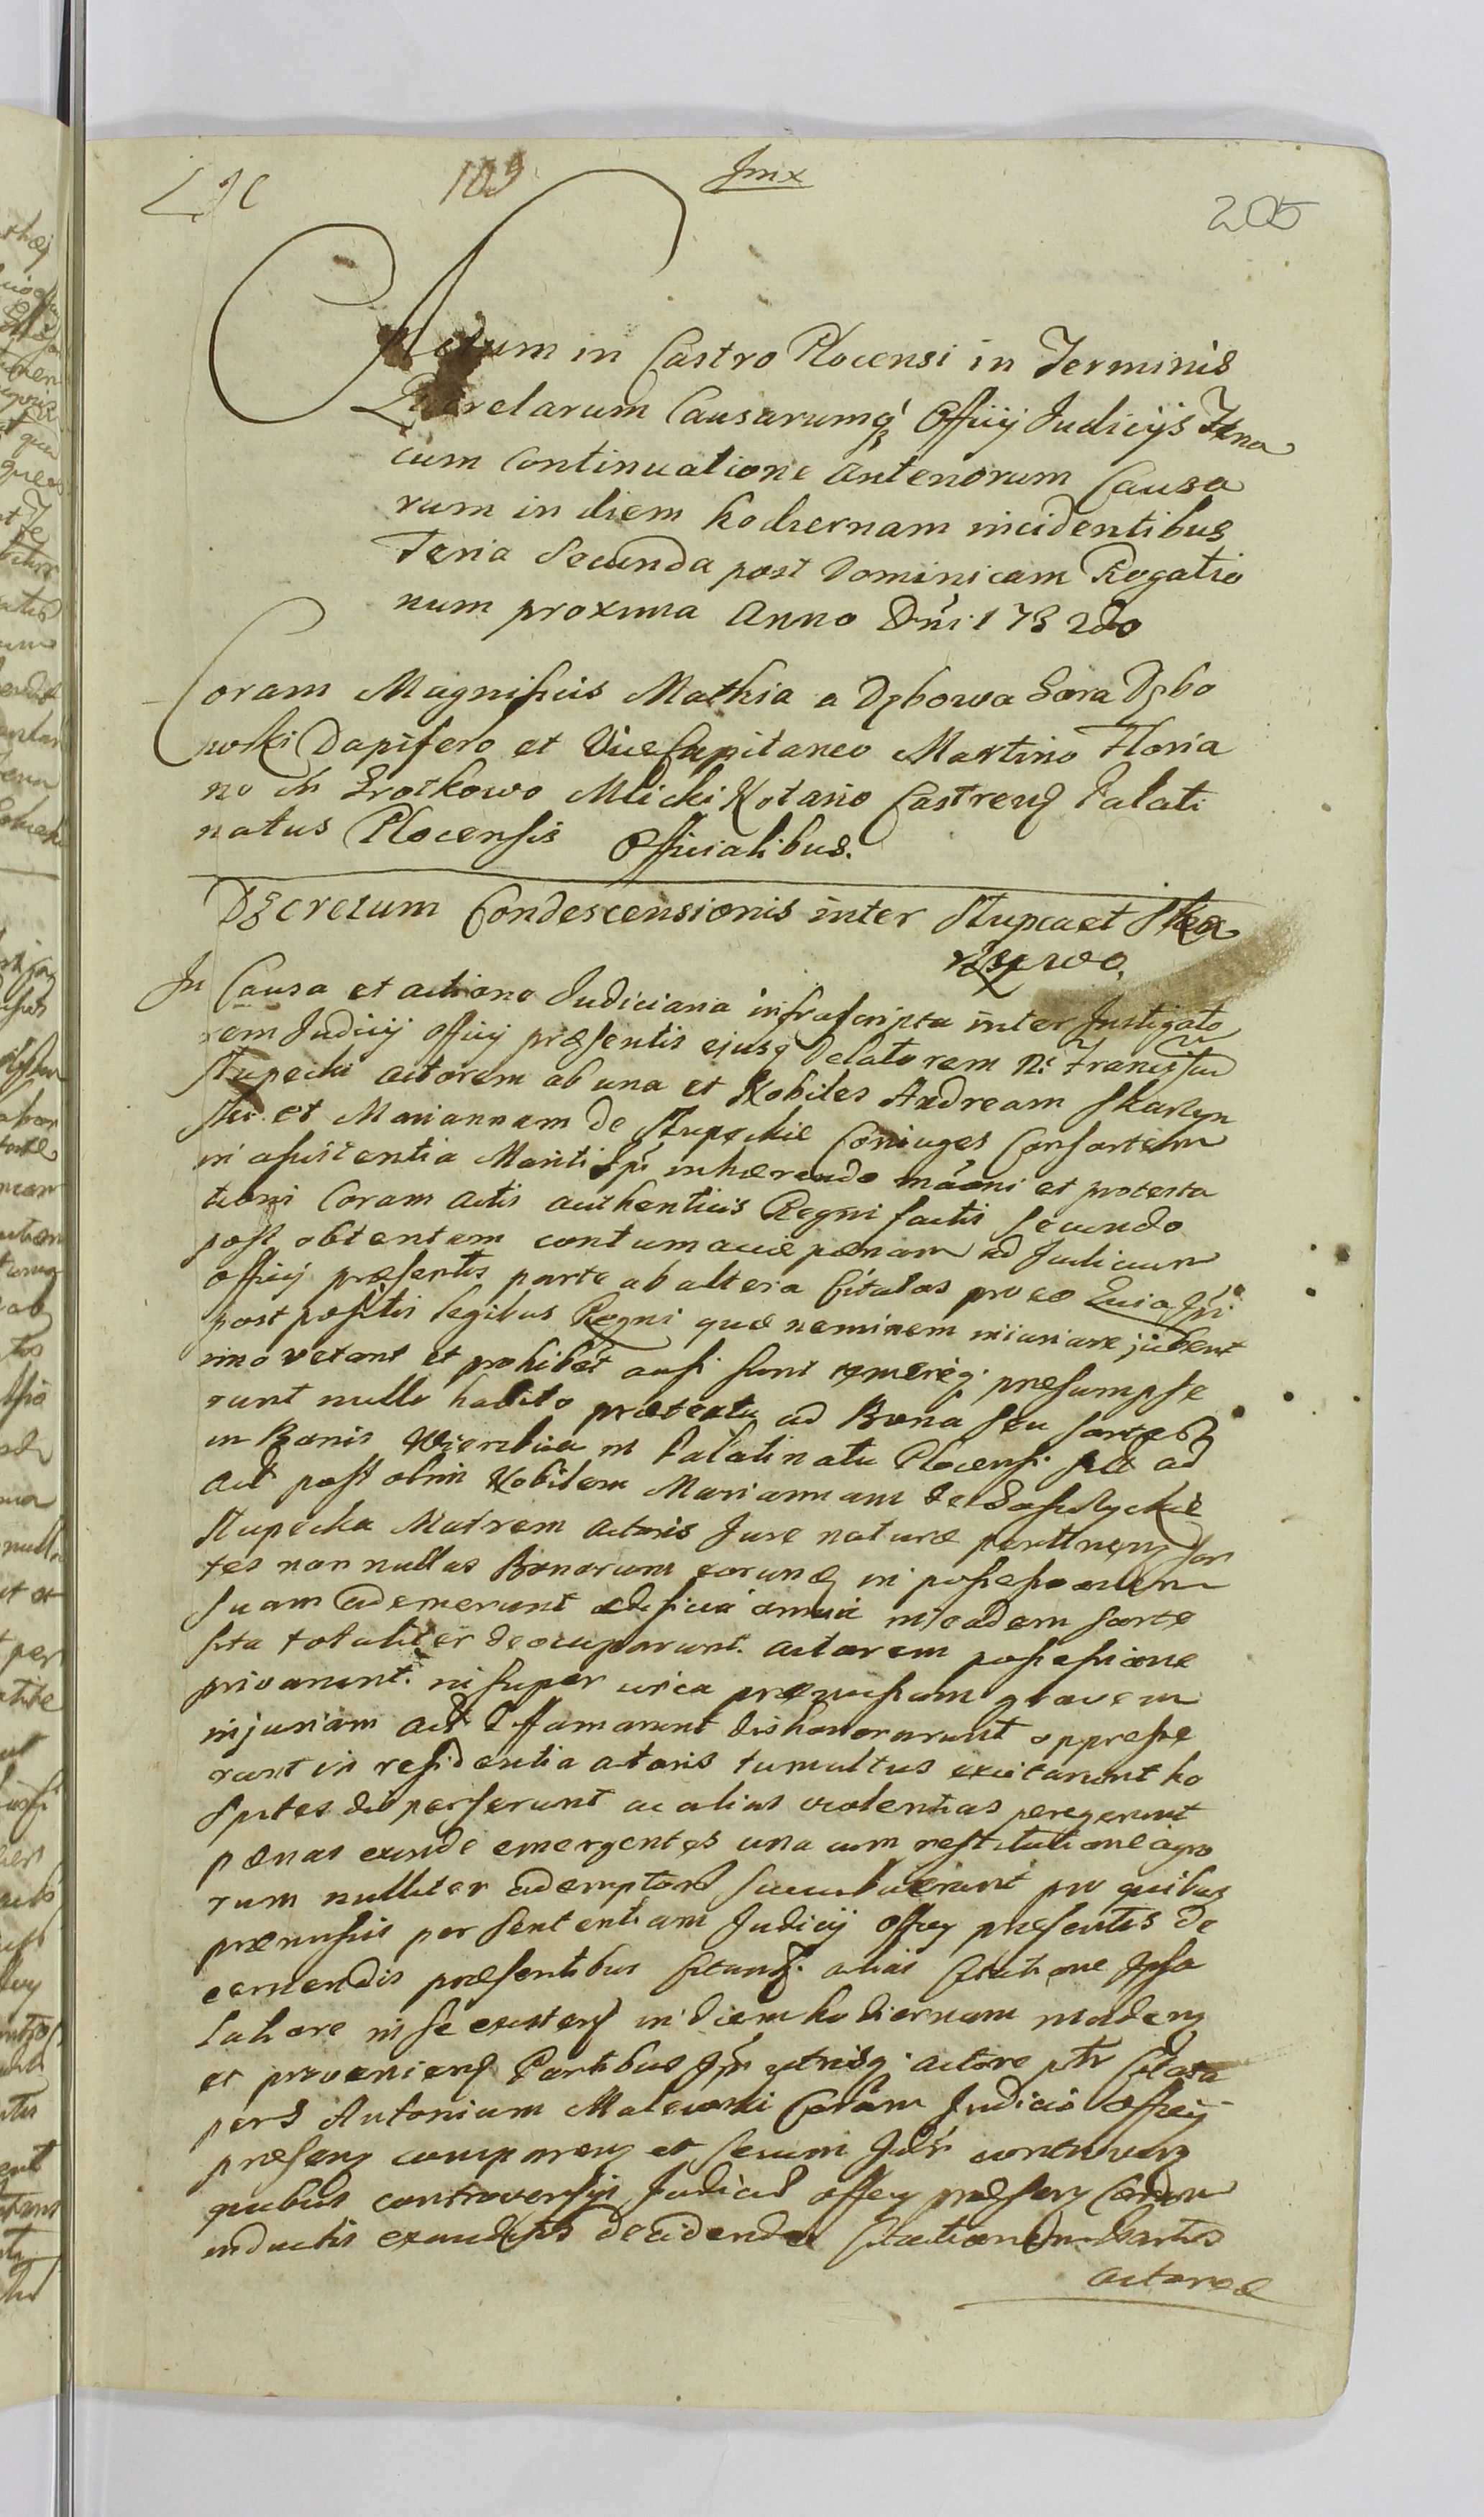 109
Jmx
205
Actum in Castro Plocensi in Terminis
Querelarum Causarumq, Officij Judicijs
cum Continuatione Anteriorum Causa
rum in diem hodiernam incidentibus
Feria Secunda post Dominicam Rogatio
num proxima Anno Dni 1732do
Coram Magnificis Mathia a Dębowa Gora Dębo
wski Dapifero et ViceCapitaneo Martino Floria
no in Srotkowo Mlicki Notario Castren Palati
natus Plocensis Officialibus.
Decretum Condescensionis inter Stupca et Skar
In Causa et actione Judiciaria infrascripta inter Instigato
rem Judicij officij præsentis ejusq Delatorem N. Francisscu
Stupecki actorem ab una et Nobiles Andream Skarzyn
ski et Mariannam de Stupeckie Coniuges Consortem
in assistentia Mariti Ipi inhærendo mãoni et protesta
tioni Coram actis authenticis Regni factis secundo
post obtentam contumaciæ pænam ad Judicium
officij præsentis parte ab altera Citatos pro eo Quia Ipi
post positis legibus Regni quæ neminem iniuriare jubent
imo vetant et prohibet ausi sunt temereq præsumpse
runt nullo habito prætextu ad Bona seu sortes
in Bonis Wierzbica in Palatinatu Plocensi ad
Act post olim Nobilem Mariannam de
Stupecka Matrem Actoris Jure naturæ pertinen sor
tes nonnullas Bonorum eorund in possessionem
suam ademerunt ædificia omnia in eadem sorte
sita totaliter deocuparunt. actorem possessione
privarunt. insuper circa præmissam gravem
injuriam Act diffamarunt dishonorarunt oppresse
runt in residentia actoris tumultus excitarunt ho
spites disperserunt ac alias violentias peregerunt
pænas exinde emergentes una cum restitutione agro
rum nulliter ademptor succubuerunt pro quibus
præmissis per sententiam Judicij officij præsentis de
cernendis præsentibus citant. alias Citatione Ipsa
latiore in se existen in diem hodiernam
et provenien Partibus Ipis utrisq actore ptr Citata
pers Antonium Malewski Coram Judicio Officij
præsen comparen et secum Idr controver
quibus controversijs Judiciu officij præsen Coram
inductis exauditis decidendo Citationem Partis
actoreæ